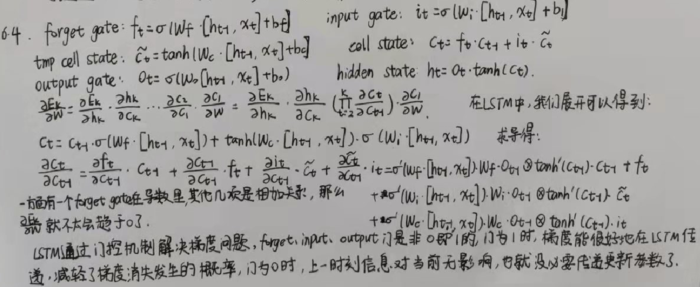 6.4. forget gate: fₜ=σ(Wf·[hₜ₋₁, xₜ]+bf) input gate: iₜ=σ(Wi·[hₜ₋₁, xₜ]+bi)
tmp cell state: c̃ₜ=tanh(Wc·[hₜ₋₁, xₜ]+bc) cell state: Cₜ=fₜ·Cₜ₋₁+iₜ·c̃ₜ
output gate: Oₜ=σ(Wo[hₜ₋₁, xₜ]+bo) hidden state hₜ=Oₜ·tanh(Cₜ).
∂Eₖ/∂W = ∂Eₖ/∂hₖ · ∂hₖ/∂Cₖ ⋯ ∂C₂/∂C₁ · ∂C₁/∂W = ∂Eₖ/∂hₖ · ∂hₖ/∂Cₖ · (∏ₜ₌₂ᴷ ∂Cₜ/∂Cₜ₋₁) · ∂C₁/∂W. 在LSTM中,我们展开可以得到:
Cₜ=Cₜ₋₁·σ(Wf·[hₜ₋₁, xₜ])+tanh(Wc·[hₜ₋₁, xₜ])·σ(Wi·[hₜ₋₁, xₜ]) 求导得:
∂Cₜ/∂Cₜ₋₁ = ∂fₜ/∂Cₜ₋₁ · Cₜ₋₁ + ∂Cₜ₋₁/∂Cₜ₋₁ · fₜ + ∂iₜ/∂Cₜ₋₁ · c̃ₜ + ∂c̃ₜ/∂Cₜ₋₁ · iₜ=σ'(Wf·[hₜ₋₁, xₜ])·Wf·Oₜ₋₁⊗tanh'(Cₜ₋₁)·Cₜ₋₁ + fₜ
一方面有一个forget gate在导数里其他几项是相加关系,那么 +σ'(Wi·[hₜ₋₁, xₜ])·Wi·Oₜ₋₁⊗tanh'(Cₜ₋₁)·c̃ₜ
就不太会趋于0了. +σ'(Wc·[hₜ₋₁, xₜ])·Wc·Oₜ₋₁⊗tanh'(Cₜ₋₁)·iₜ
LSTM通过门控机制解决梯度问题,forget,input、output门是非0即1的,门为1时,梯度能很好地在LSTM传
递,减轻了梯度消失发生的概率,门为0时,上一时刻信息对当前无影响,也就没必要传递更新参数了.